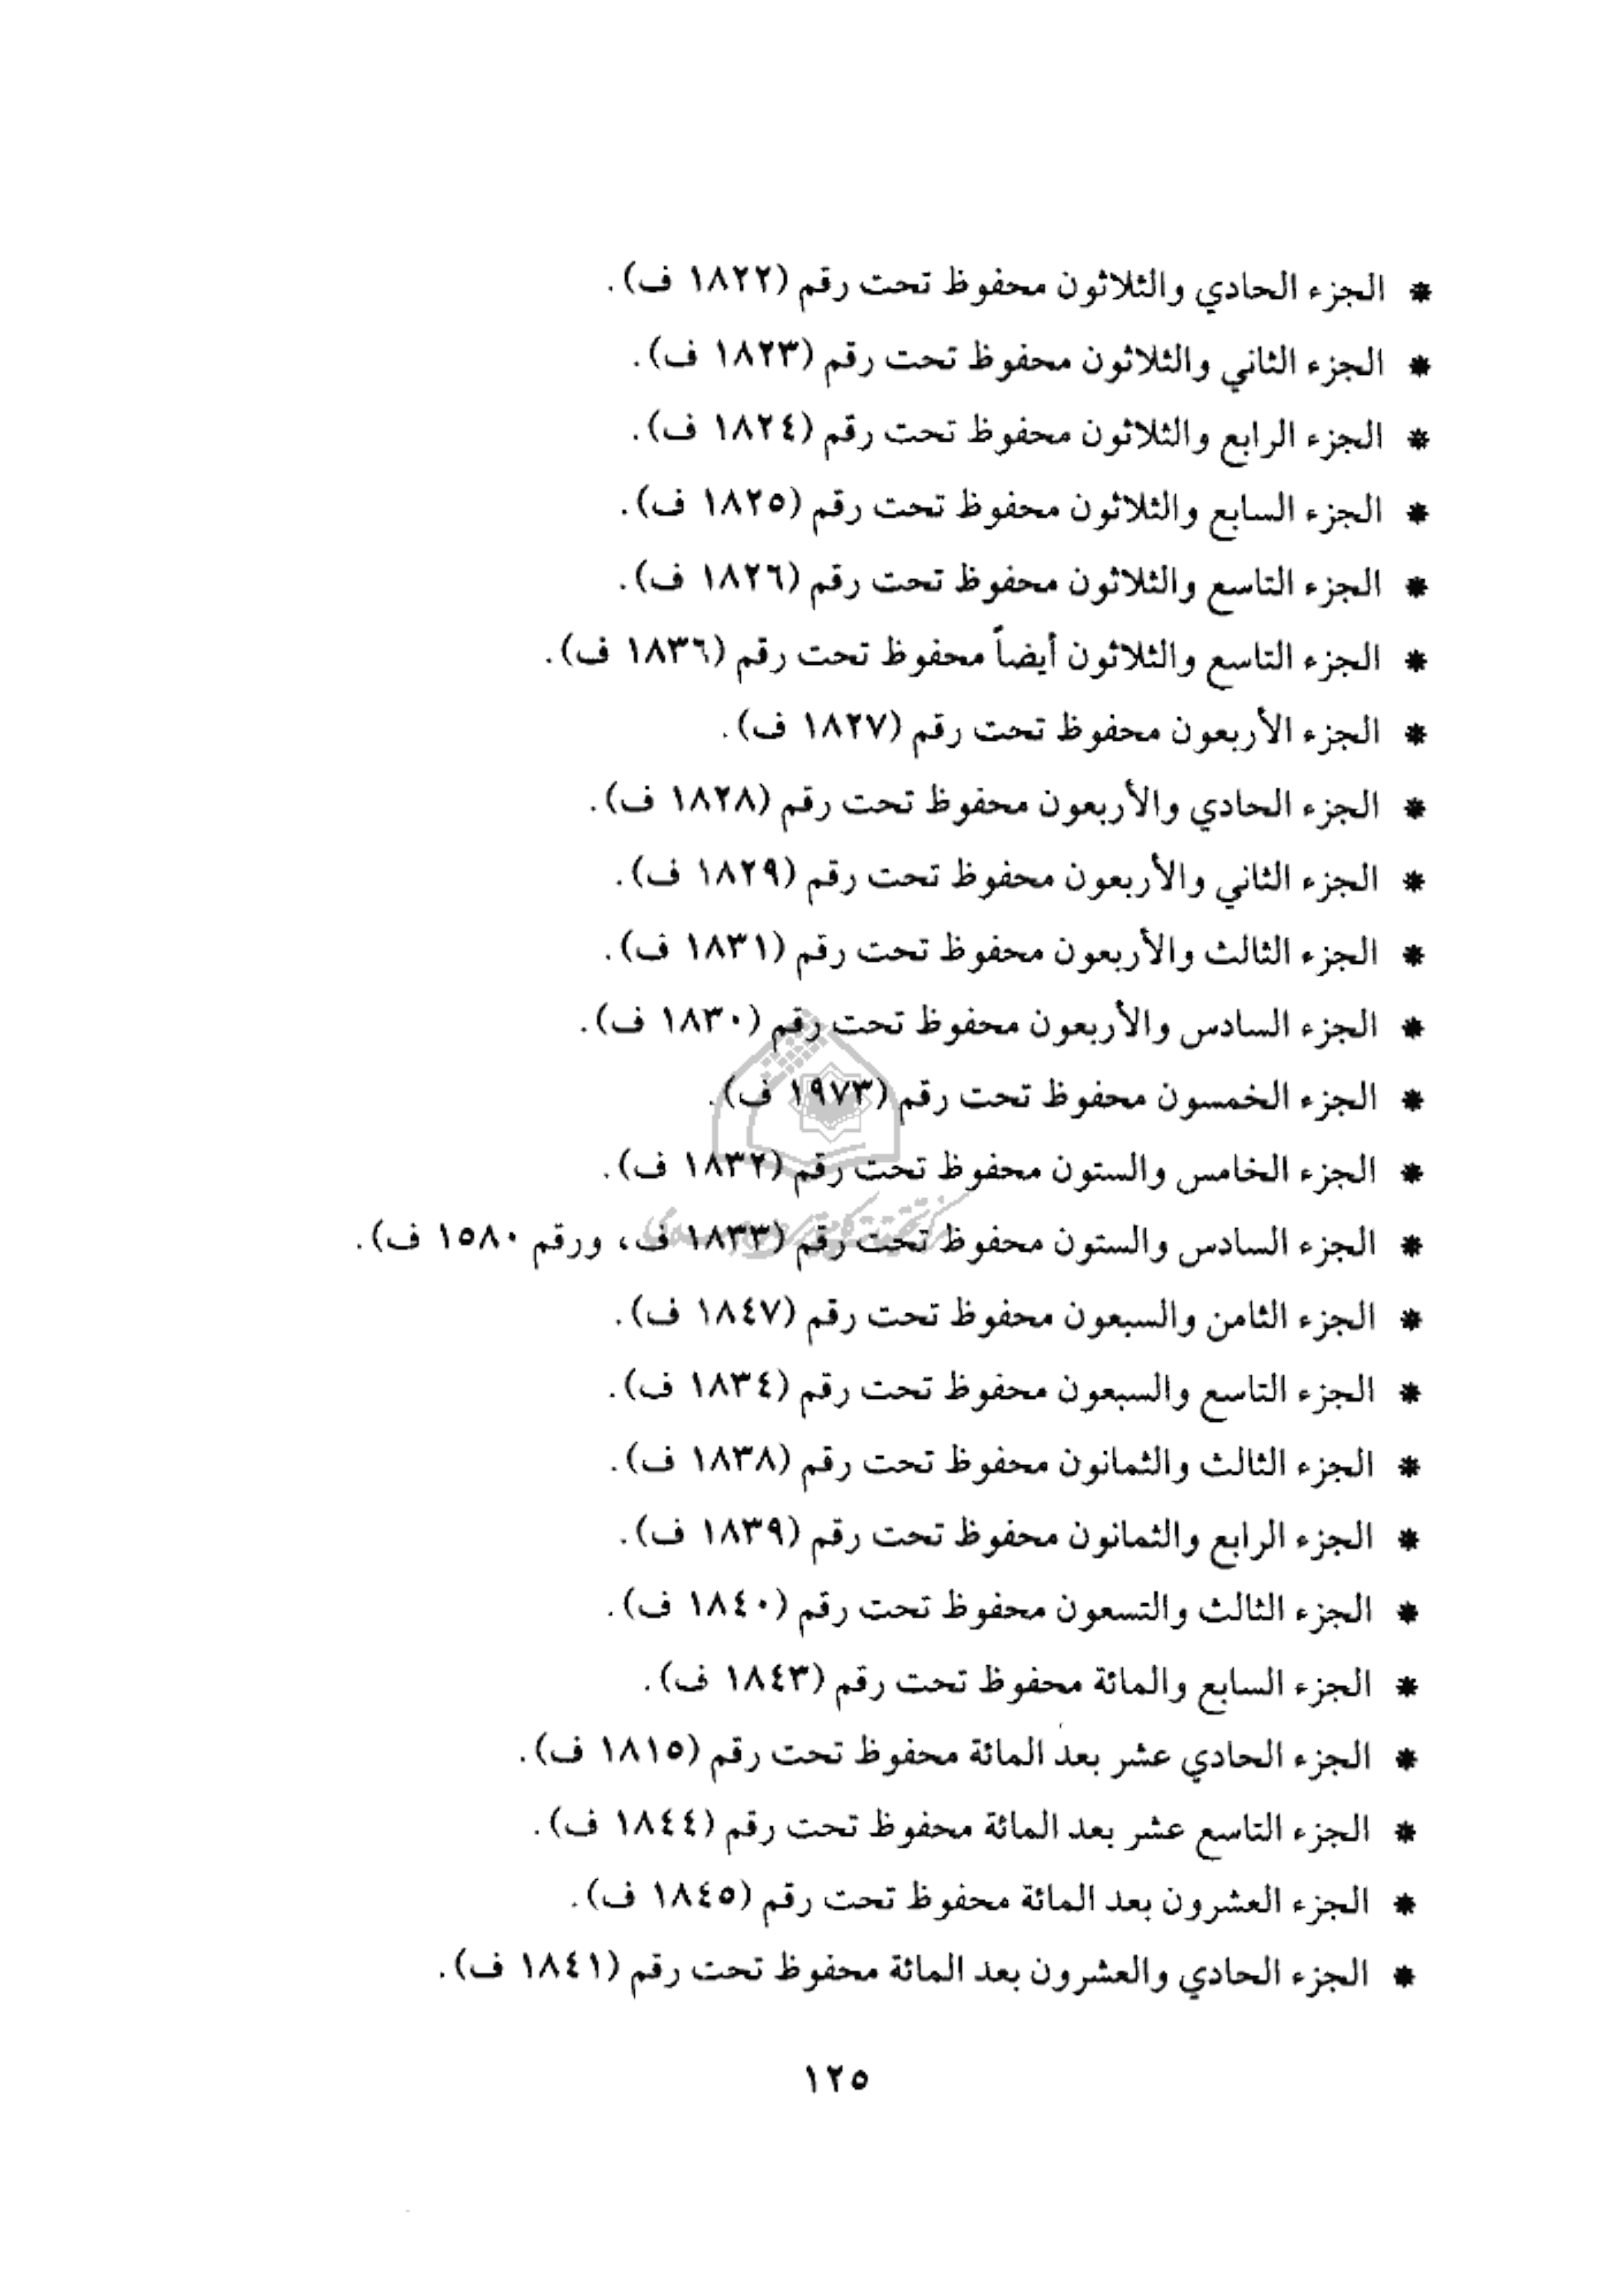 * الجزء الحادي والثلاثون محفوظ تحت رقم (١٨٢٢ ف).
* الجزء الثاني والثلاثون محفوظ تحت رقم (١٨٢٣ ف).
* الجزء الرابع والثلاثون محفوظ تحت رقم (١٨٢٤ ف).
* الجزء السابع والثلاثون محفوظ تحت رقم (١٨٢٥ ف).
* الجزء التاسع والثلاثون محفوظ تحت رقم (١٨٢٦ ف).
* الجزء التاسع والثلاثون أيضاً محفوظ تحت رقم (١٨٣٦ ف).
* الجزء الأربعون محفوظ تحت رقم (١٨٢٧ ف).
* الجزء الحادي والأربعون محفوظ تحت رقم (١٨٢٨ ف).
* الجزء الثاني والأربعون محفوظ تحت رقم (١٨٢٩ ف).
* الجزء الثالث والأربعون محفوظ تحت رقم (١٨٣١ ف).
* الجزء السادس والأربعون محفوظ تحت رقم (١٨٣٠ ف).
* الجزء الخمسون محفوظ تحت رقم (١٩٧٣ ف).
* الجزء الخامس والستون محفوظ تحت رقم (١٨٣٢ ف).
* الجزء السادس والستون محفوظ تحت رقم (١٨٣٣ ف، ورقم ١٥٨٠ ف).
* الجزء الثامن والسبعون محفوظ تحت رقم (١٨٤٧ ف).
* الجزء التاسع والسبعون محفوظ تحت رقم (١٨٣٤ ف).
* الجزء الثالث والثمانون محفوظ تحت رقم (١٨٣٨ ف).
* الجزء الرابع والثمانون محفوظ تحت رقم (١٨٣٩ ف).
* الجزء الثالث والتسعون محفوظ تحت رقم (١٨٤٠ ف).
* الجزء السابع والمائة محفوظ تحت رقم (١٨٤٣ ف).
* الجزء الحادي عشر بعد المائة محفوظ تحت رقم (١٨١٥ ف).
* الجزء التاسع عشر بعد المائة محفوظ تحت رقم (١٨٤٤ ف).
* الجزء العشرون بعد المائة محفوظ تحت رقم (١٨٤٥ ف).
* الجزء الحادي والعشرون بعد المائة محفوظ تحت رقم (١٨٤١ ف).
١٢٥